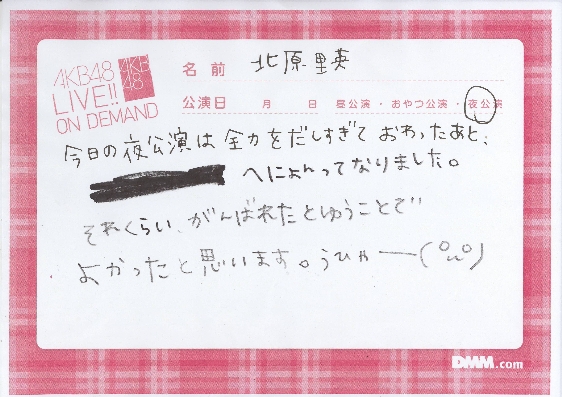 AKB48
LIVE!!
ON DEMAND
AKB
48
名前 北原里英
公演日 月 日 昼公演・おやつ公演・夜公演
今日の夜公演は全力をだしすぎて おわったあと、
へにょんってなりました。
それくらい、がんばれたとゆうことで
よかったと思います。うひゃー
DMM.com